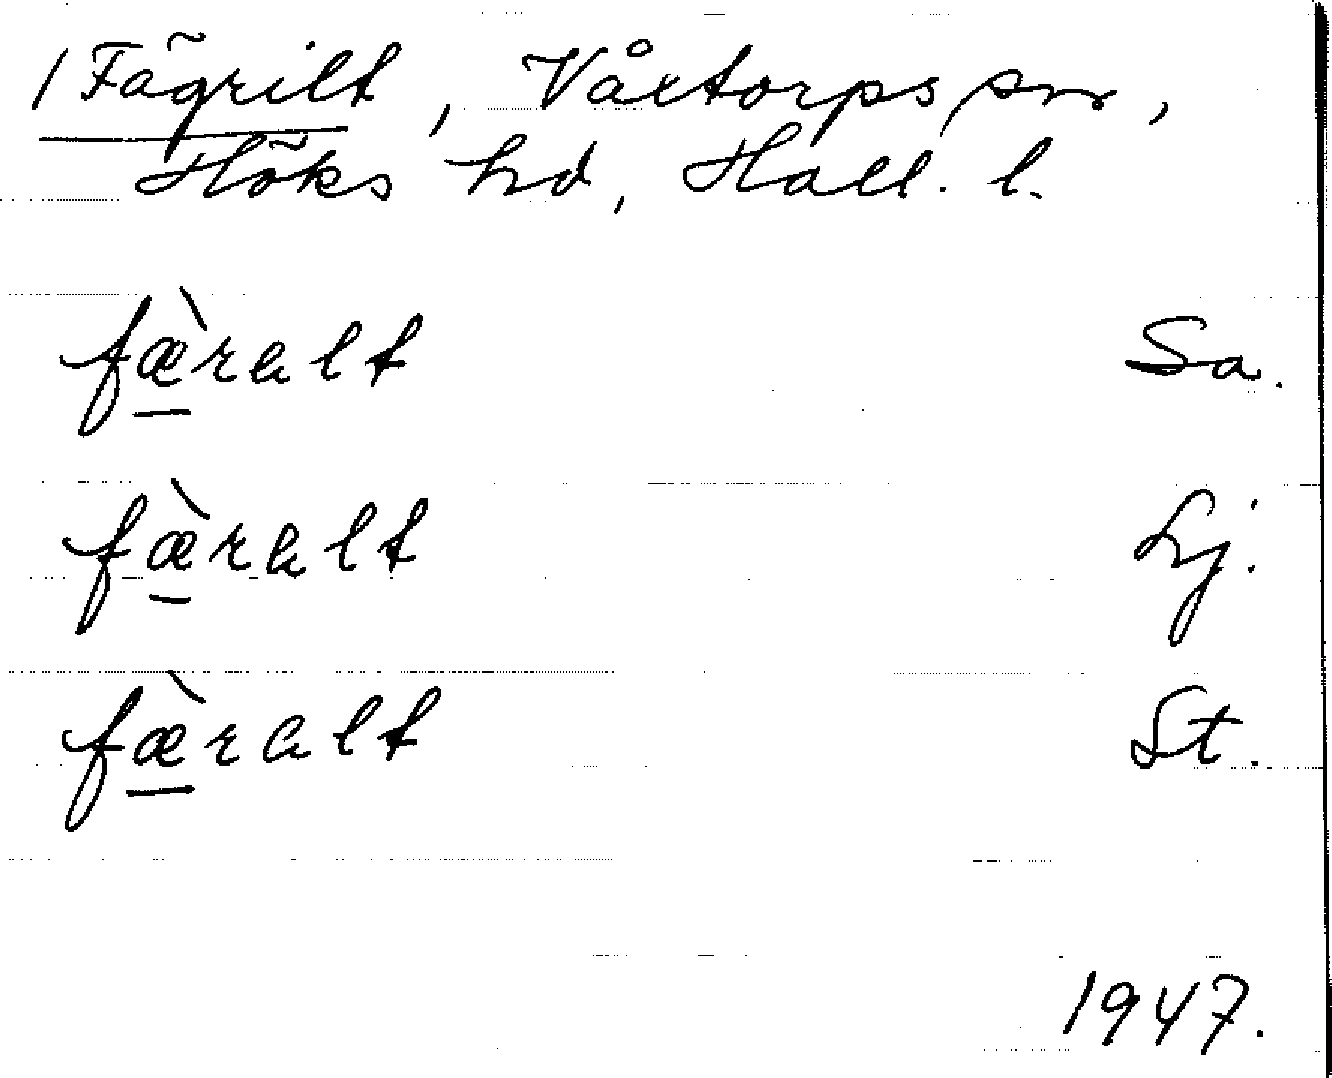 / Fägrilt, Våxtorps sn,
Höks hd, Hall. l.
fæ̀ralt Sa.
fæ̀ralt Lj.
fæ̀ralt St.
1947.